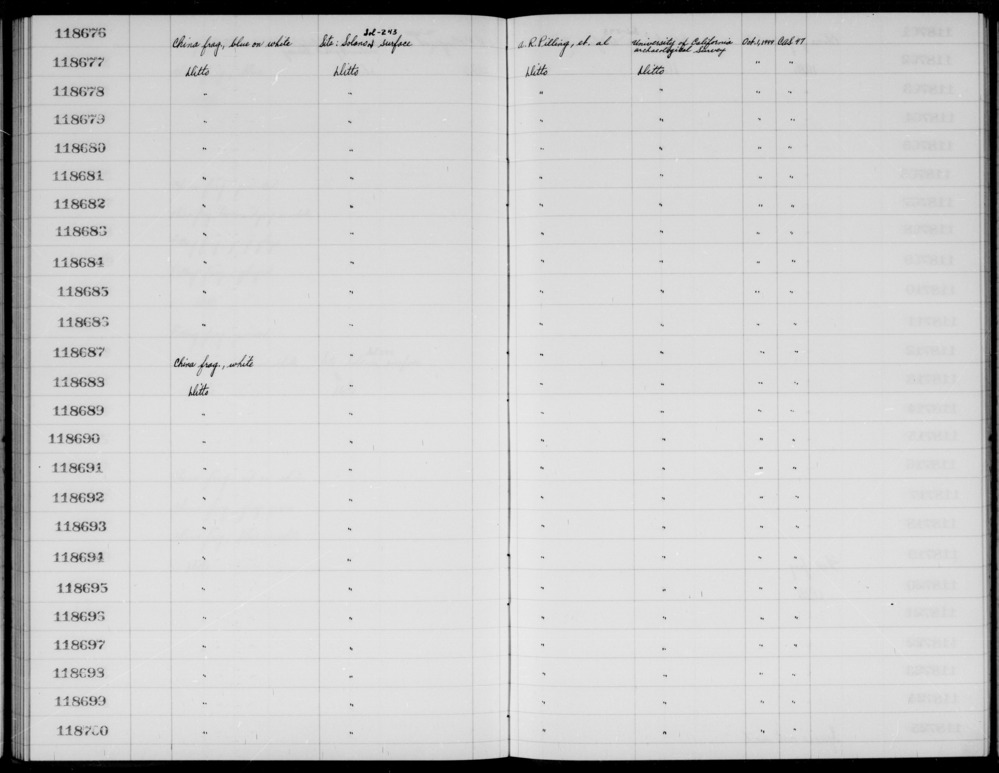 Sol-243
118676 China frag., blue on white Site: Solano, surface A. R. Pilling, et. al University of California Oct. 1, 1949 CAS 47
archaeological Survey
118677 Ditto Ditto Ditto Ditto " "
118678 " " " " " "
118679 " " " " " "
118680 " " " " " "
118681 " " " " " "
118682 " " " " " "
118683 " " " " " "
118684 " " " " " "
118685 " " " " " "
118686 " " " " " "
118687 China frag., white " " " " "
118688 Ditto " " " " "
118689 " " " " " "
118690 " " " " " "
118691 " " " " " "
118692 " " " " " "
118693 " " " " " "
118694 " " " " " "
118695 " " " " " "
118696 " " " " " "
118697 " " " " " "
118698 " " " " " "
118699 " " " " " "
118700 " " " " " "